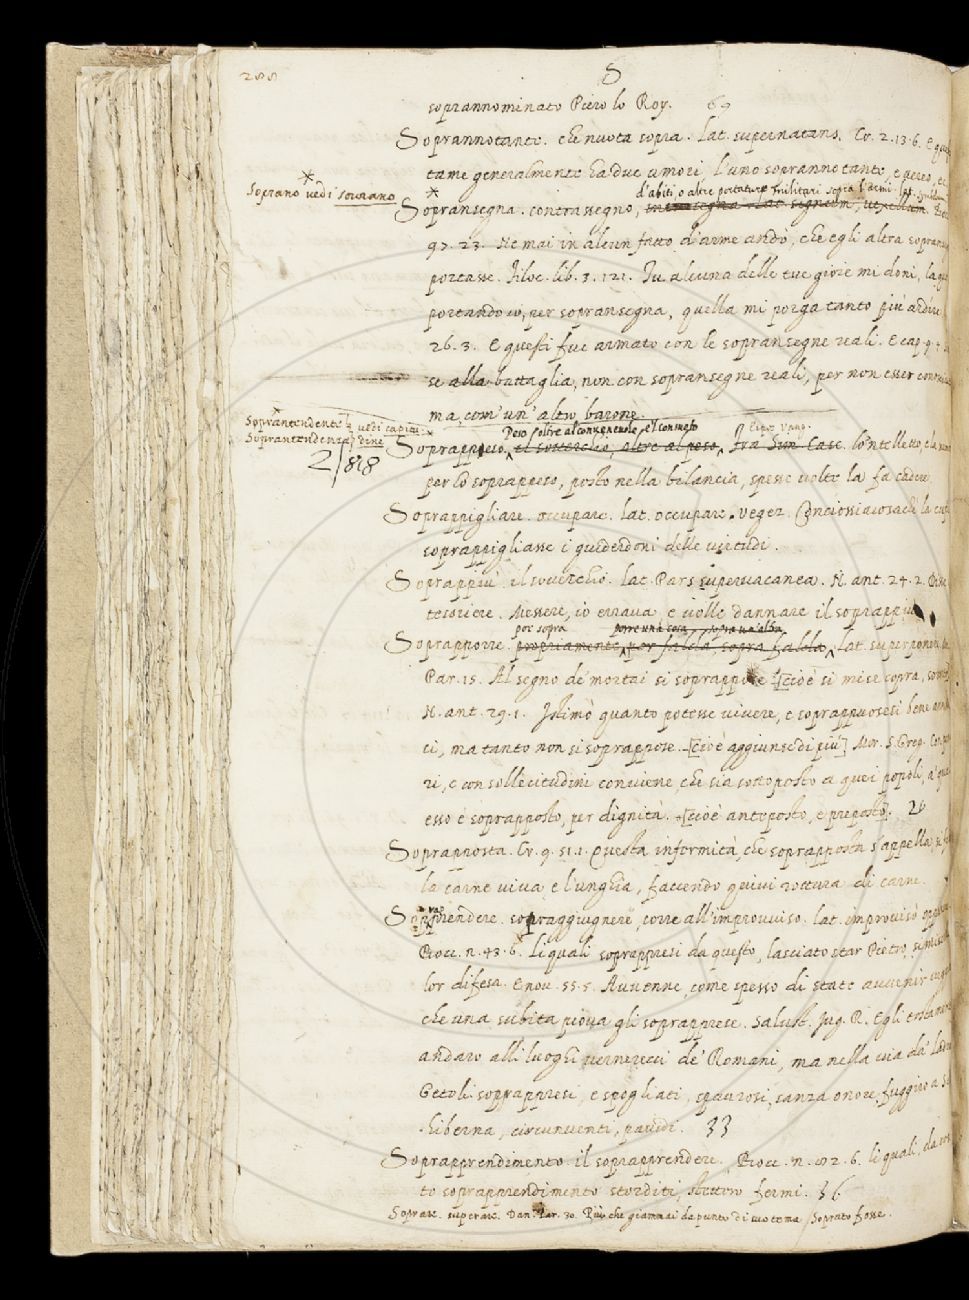 288
S
soprannominato Piero lo Roy. 69
Soprannotante. che nuota sopra. lat. supernatans. Cr. 2.13.6. E
tame generalmente ha due umori, l'uno soprannotante, e aereo,
* Soprano vedi sovrano
* d'abiti o altre portature militari sopra l'armi. lat.
Sopransegna. contrassegno, intrasegna. lat. signum, vexillum.
97. 23. Ne mai in alcun fatto d'arme andò, che egli altra sopran
portasse. Filoc. lib. 3. 121. Tu alcuna delle tue gioie mi doni, la
portando io, per sopransegna, quella mi porga tanto più ardire
26. 3. E questi fue armato con le sopransegne reali. E cap. 9.
se alla battaglia, non con sopransegne reali, per non esser
ma com' un' altro barone.
* Soprantendente vedi capitu
Soprantendenza dine
2/818
Peso oltre al convenevole, e'l consueto
Soprappeso. il soverchio, oltre al peso, fra Iun. Casc. lo'ntelletto,
per lo soprappeso, posto nella bilancia, spesse volte la fa cadere
Soprappigliare. occupare. lat. occupare. Vegez. Conciossiacosachè la
soprappigliasse i guiderdoni delle virtudi.
Soprappiù. il soverchio. lat. Pars supervacanea. N. ant. 24. 2. Disse
tesoriere. Messere, io errava e volle dannare il soprappiù
por sopra porre una cosa sopra un'altra
Soprapporre. propriamente, por falda, sopra falda, lat. superponere
Par. 15. Al segno de' mortai si soprappose. [cioè si mise sopra,
N. ant. 29. 1. Istimò quanto potesse vivere, e soprappuosesi bene
ci, ma tanto non si soprappose. [cioè aggiunse di più] Mor. S. Greg.
ri, e con sollecitudini conviene, che sia sottoposto a quei popoli, a'
esso è soprapposto, per dignità. [cioè antoposto, e preposto]. 26
Soprapposta. Cr. 9. 51. 1. Questa infermità, che soprapposta s'appella, si
la carne viva e l'unghia, faccendo quivi rottura di carne.
Soprapprendere. sopraggiugnere, corre all'improvviso. lat. improviso
Bocc. n. 43. 6. Li quali soprappresi da questo, lasciato star Pietro,
lor difesa. E nov. 55. 5. Avvenne, come spesso di state avvenir
che una subita piova gli soprapprese. Salust. Jug. R. Egli
andaro alli luoghi vernerecci de' Romani, ma nella via da'
Getoli soprappresi, e spogliati, spaurosi, sanza onore fuggiro a
hiberna, circunventi, pavidi. 33
Soprapprendimento. il soprapprendere. Bocc. n. 2. 6. li quali, da
to soprapprendimento storditi, stettero fermi. 36
Soprare. superare. Dan. Par. 30. Più che giammai da punto di suo tema / Soprato fosse.